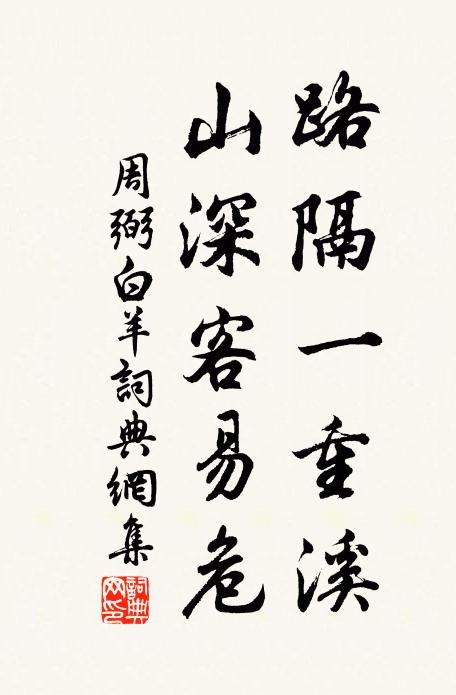 路隔一重溪
山深客易危
周弼白羊詞典網集
詞典網印